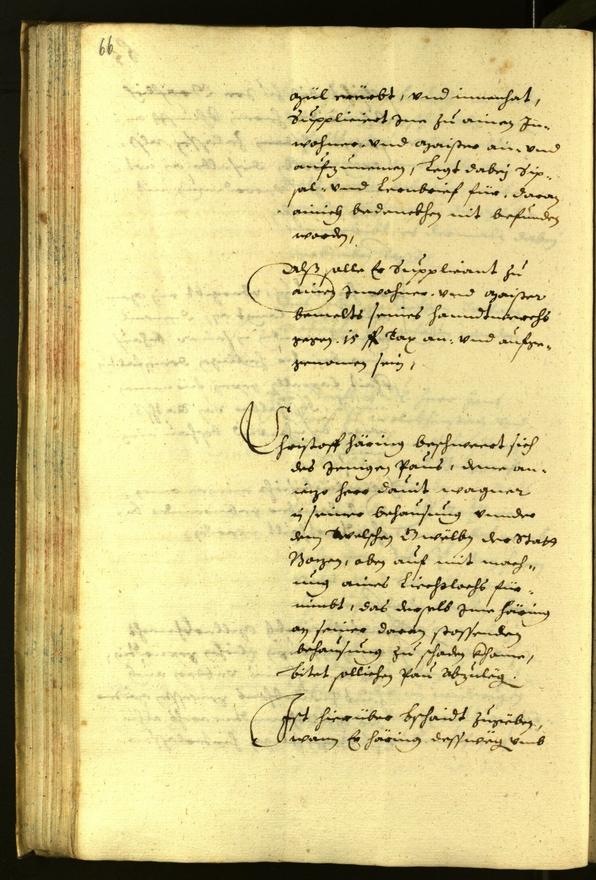 66
erwirbt, und innenhat,
Supplicierst Ine zu ainen In-
wohner. und Maister an- und
aufzunemen, legt dabej
und Lernbrief für, daran
ainich bedenckhen nit befunden
worden,
Alß solle Er Supplicant zu
ainen Inwohner. und Maister
bemelts seines handtwerchs
gegen. 15 ff Tax an- und aufge-
genomen sein,
Christoff Häring beschwert sich
des Jenigen Paus, denn an-
iezo herr Davit Wagner
in seiner behausung under
dem Welschen Gwelben der Statt
Bozen, oben auf mit mach-
ung aines Liechtlochs für-
nimbt, das derselb Ime Häring
an seiner daran stossenden
behausung zu schaden khome,
bitet sollichen Pau Abzuleg.
Ist hierüber Bschaidt zugeben,
wann Er Häring dessweg umb